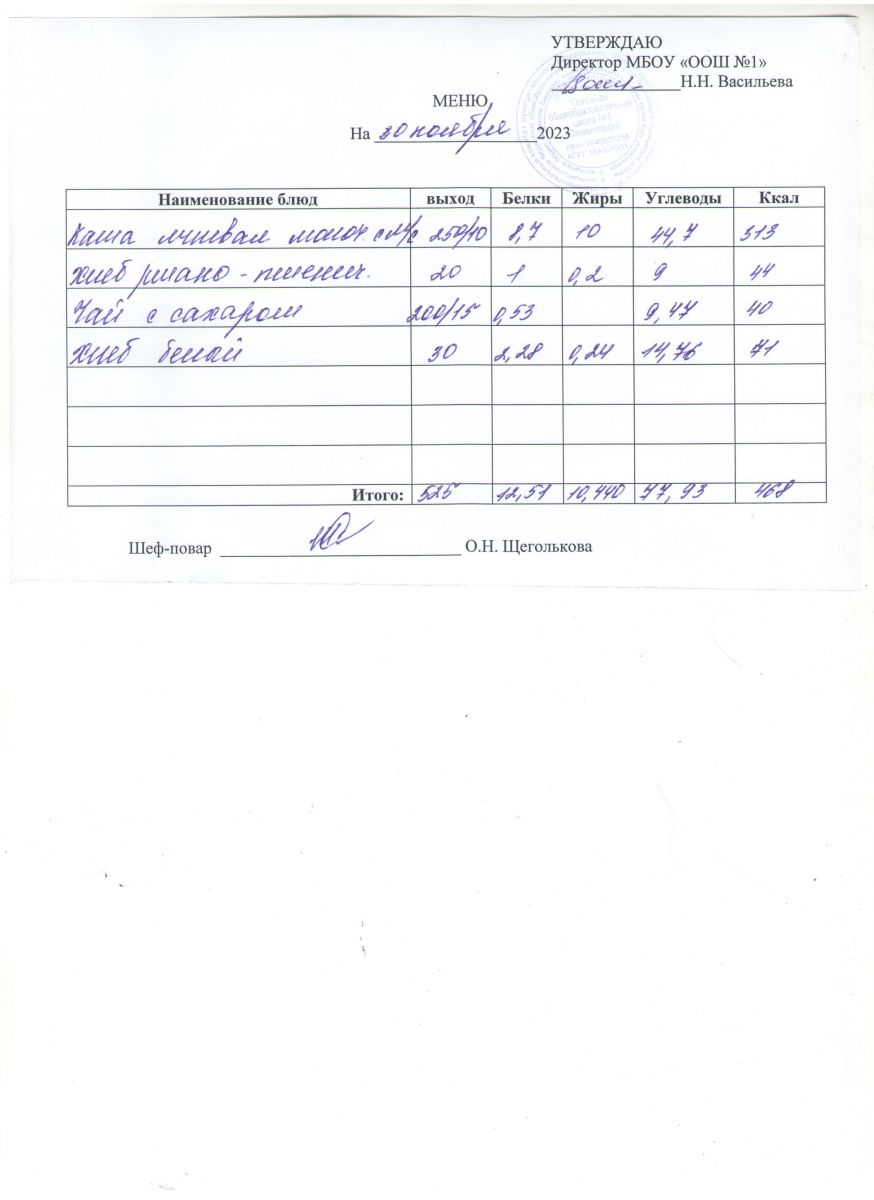 УТВЕРЖДАЮ
Директор МБОУ «ООШ №1»
Н.Н. Васильева
МЕНЮ
На 30 ноября 2023
Основная
общеобразовательная
школа №1
КПП 164901001
Наименование блюд выход Белки Жиры Углеводы Ккал
Каша молоч. с м/с 250/10 8,7 10 44,7 313
Хлеб ржано-пшенич. 20 1 0,2 9 44
Чай с сахаром 200/15 0,53 9,47 40
Хлеб белый 30 2,28 0,24 14,76 71
Итого: 525 12,51 10,440 77,93 468
Шеф-повар О.Н. Щеголькова